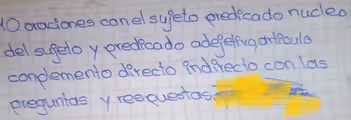 10 oraciones con el sujeto predicado nucleo
del sujeto y predicado adejetivo,articulo
complemento directo indirecto con las
preguntas y respuestas